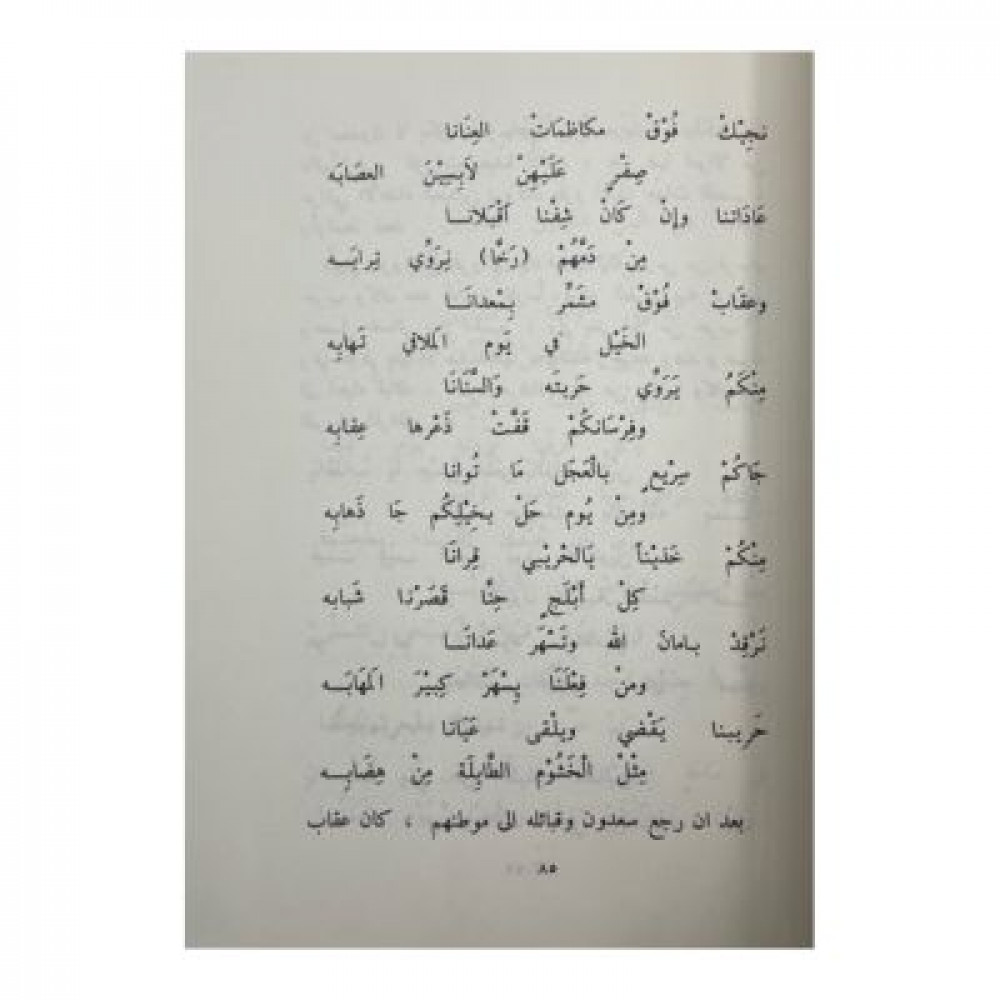 نجِيْكْ فُوْقْ مكاظمَاتْ العِنَانا
صِفْرٍ عَلَيْهِنْ لَابِسِيْنَ العصَابَه
عَادَاتنا وإنْ كَانْ شِفْنا اَقْبَلانــا
مِنْ دَمَّهُمْ (رَخَّا) نِرَوِّي تِرابَــه
وعقَابْ فُوْقْ مشَمِّرٍ بِمْعدانَــا
الخَيْل في يَوم الَملاقي تَهابِه
مِنْكَمُ يَرَوِّي حَربتَه وَالسِّنَانَا
وفِرْسَانكُمْ قَفَّتْ ذَعْرها عِقابِه
جَاكُمْ سِرِيْعٍ بالْعَجَل مَا تُوانا
ومِنْ يُوم حَلْ بخِيْلِكُم جَا ذَهابِه
مِنْكُمْ خَذيْناً بَالحْريْـبي قِرانَا
كِلْ أبْلَجٍ حِنَّا قَصَرْنا شَبابه
نَرْقِدْ بـامانْ الله وتَسْهَر عَدانَــا
ومنْ فِعْلَنَا يِسْهَرْ كِبِيْرَ الَمهَابَــه
حَرِيبنا يَقْضي ويلْقى عَيَانا
مِثْلْ الْخَشُوْم الطَّايِلَة مِنْ هِضَابِــه
بعد ان رجع سعدون وقبائله الى موطنهم ، كان عقاب
٨٥